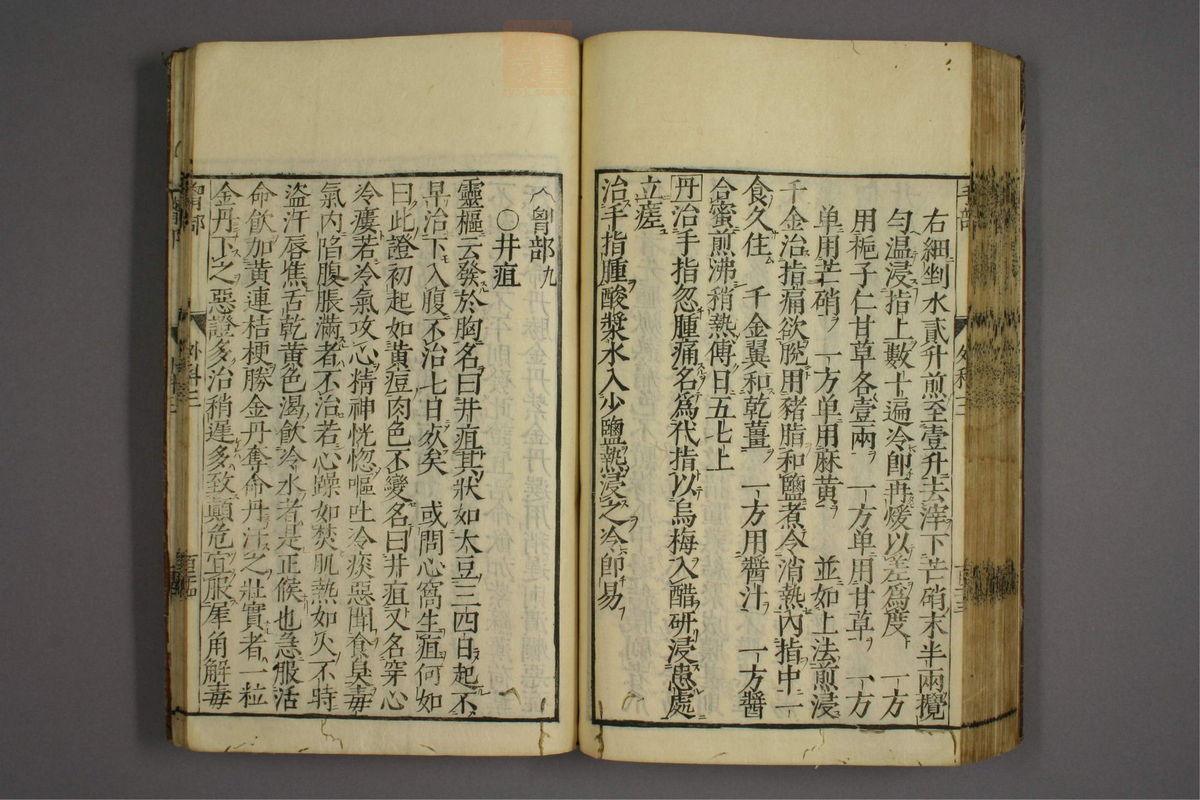 右細剉水貳升煎至壹升去滓下芒硝末半兩攪
勻溫浸指上數十遍冷卽再煖以差爲度　一方
用梔子仁甘草各壹兩　一方单用甘草　一方
单用芒硝　一方单用麻黃　並如上法煎浸
千金治指痛欲脫用豬脂和鹽煮令消熱內指中一
食久住　千金翼和乾薑　一方用醬汁　一方醬
合蜜煎沸稍熱傅日五七上
丹治手指忽腫痛名爲代指以烏梅入醋研浸患處
立瘥
治手指腫酸漿水入少鹽熱浸之冷卽易
胷部九
○井疽
靈樞云發於胸名曰井疽其狀如大豆三四日起不
早治下入腹不治七日死矣　或問心窩生疽何如
曰此證初起如黃痘肉色不變名曰井疽又名穿心
冷瘻若冷氣攻心精神恍惚嘔吐冷痰惡聞食臭毒
氣內陷腹脹滿者不治若心躁如焚肌熱如火不時
盜汗唇焦舌乾黃色渴飲冷水者是正候也急服活
命飲加黃連桔梗勝金丹奪命丹汗之壯實者一粒
金丹下之惡證多治稍遲多致顛危宜服犀角解毒
手部
外科三
胷部
外科三